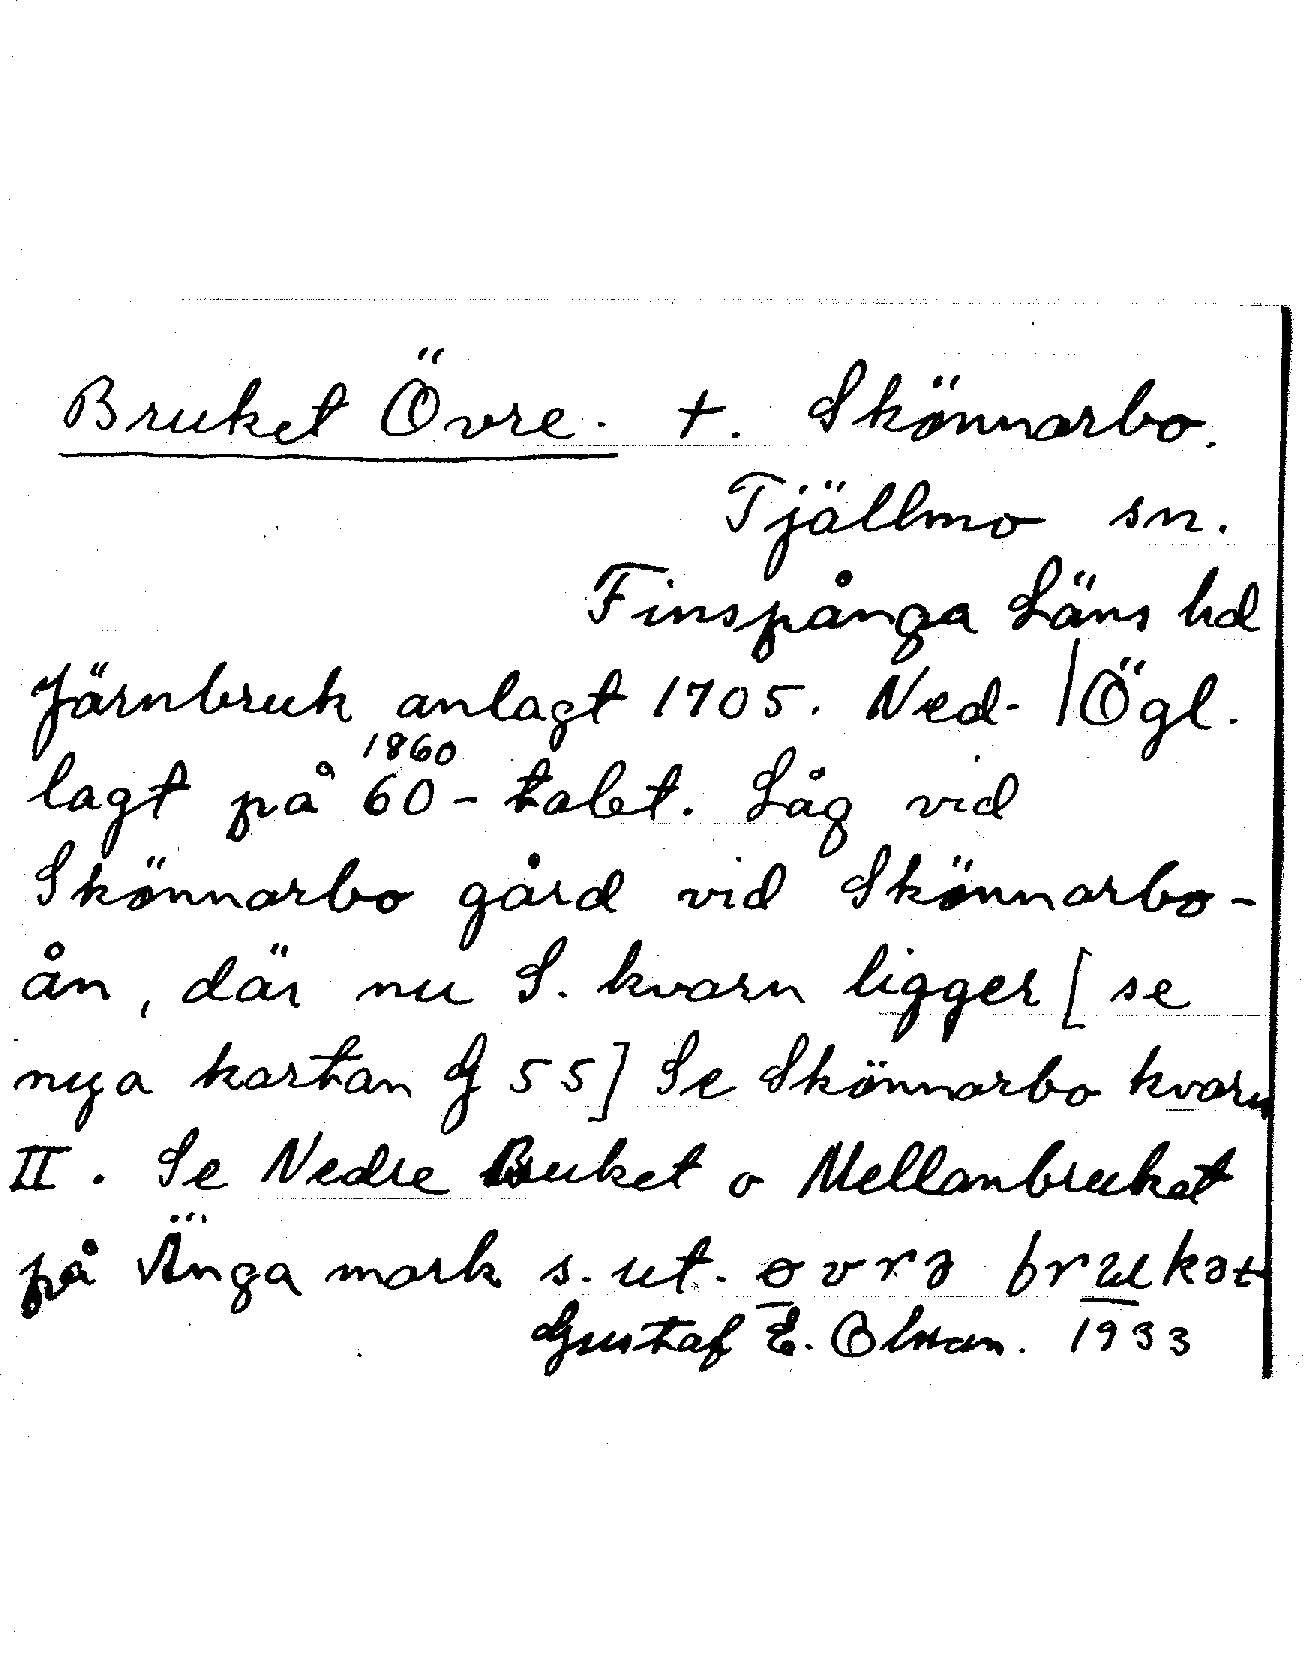 Bruket Övre. +. Skönnarbo.
Tjällmo sn.
Finspånga Läns hd
Järnbruk anlagt 1705. Ned- / Ögl.
1860
lagt på 60-talet. Låg vid
Skönnarbo gård vid Skönnarbo-
ån, där nu S. kvarn ligger [se
nya kartan G 55] Se Skönnarbo kvarn
II. Se Nedre Bruket o Mellanbruket
på Änga mark s. ut. ɵvrə brukət
Gustaf E. Olsson. 1933